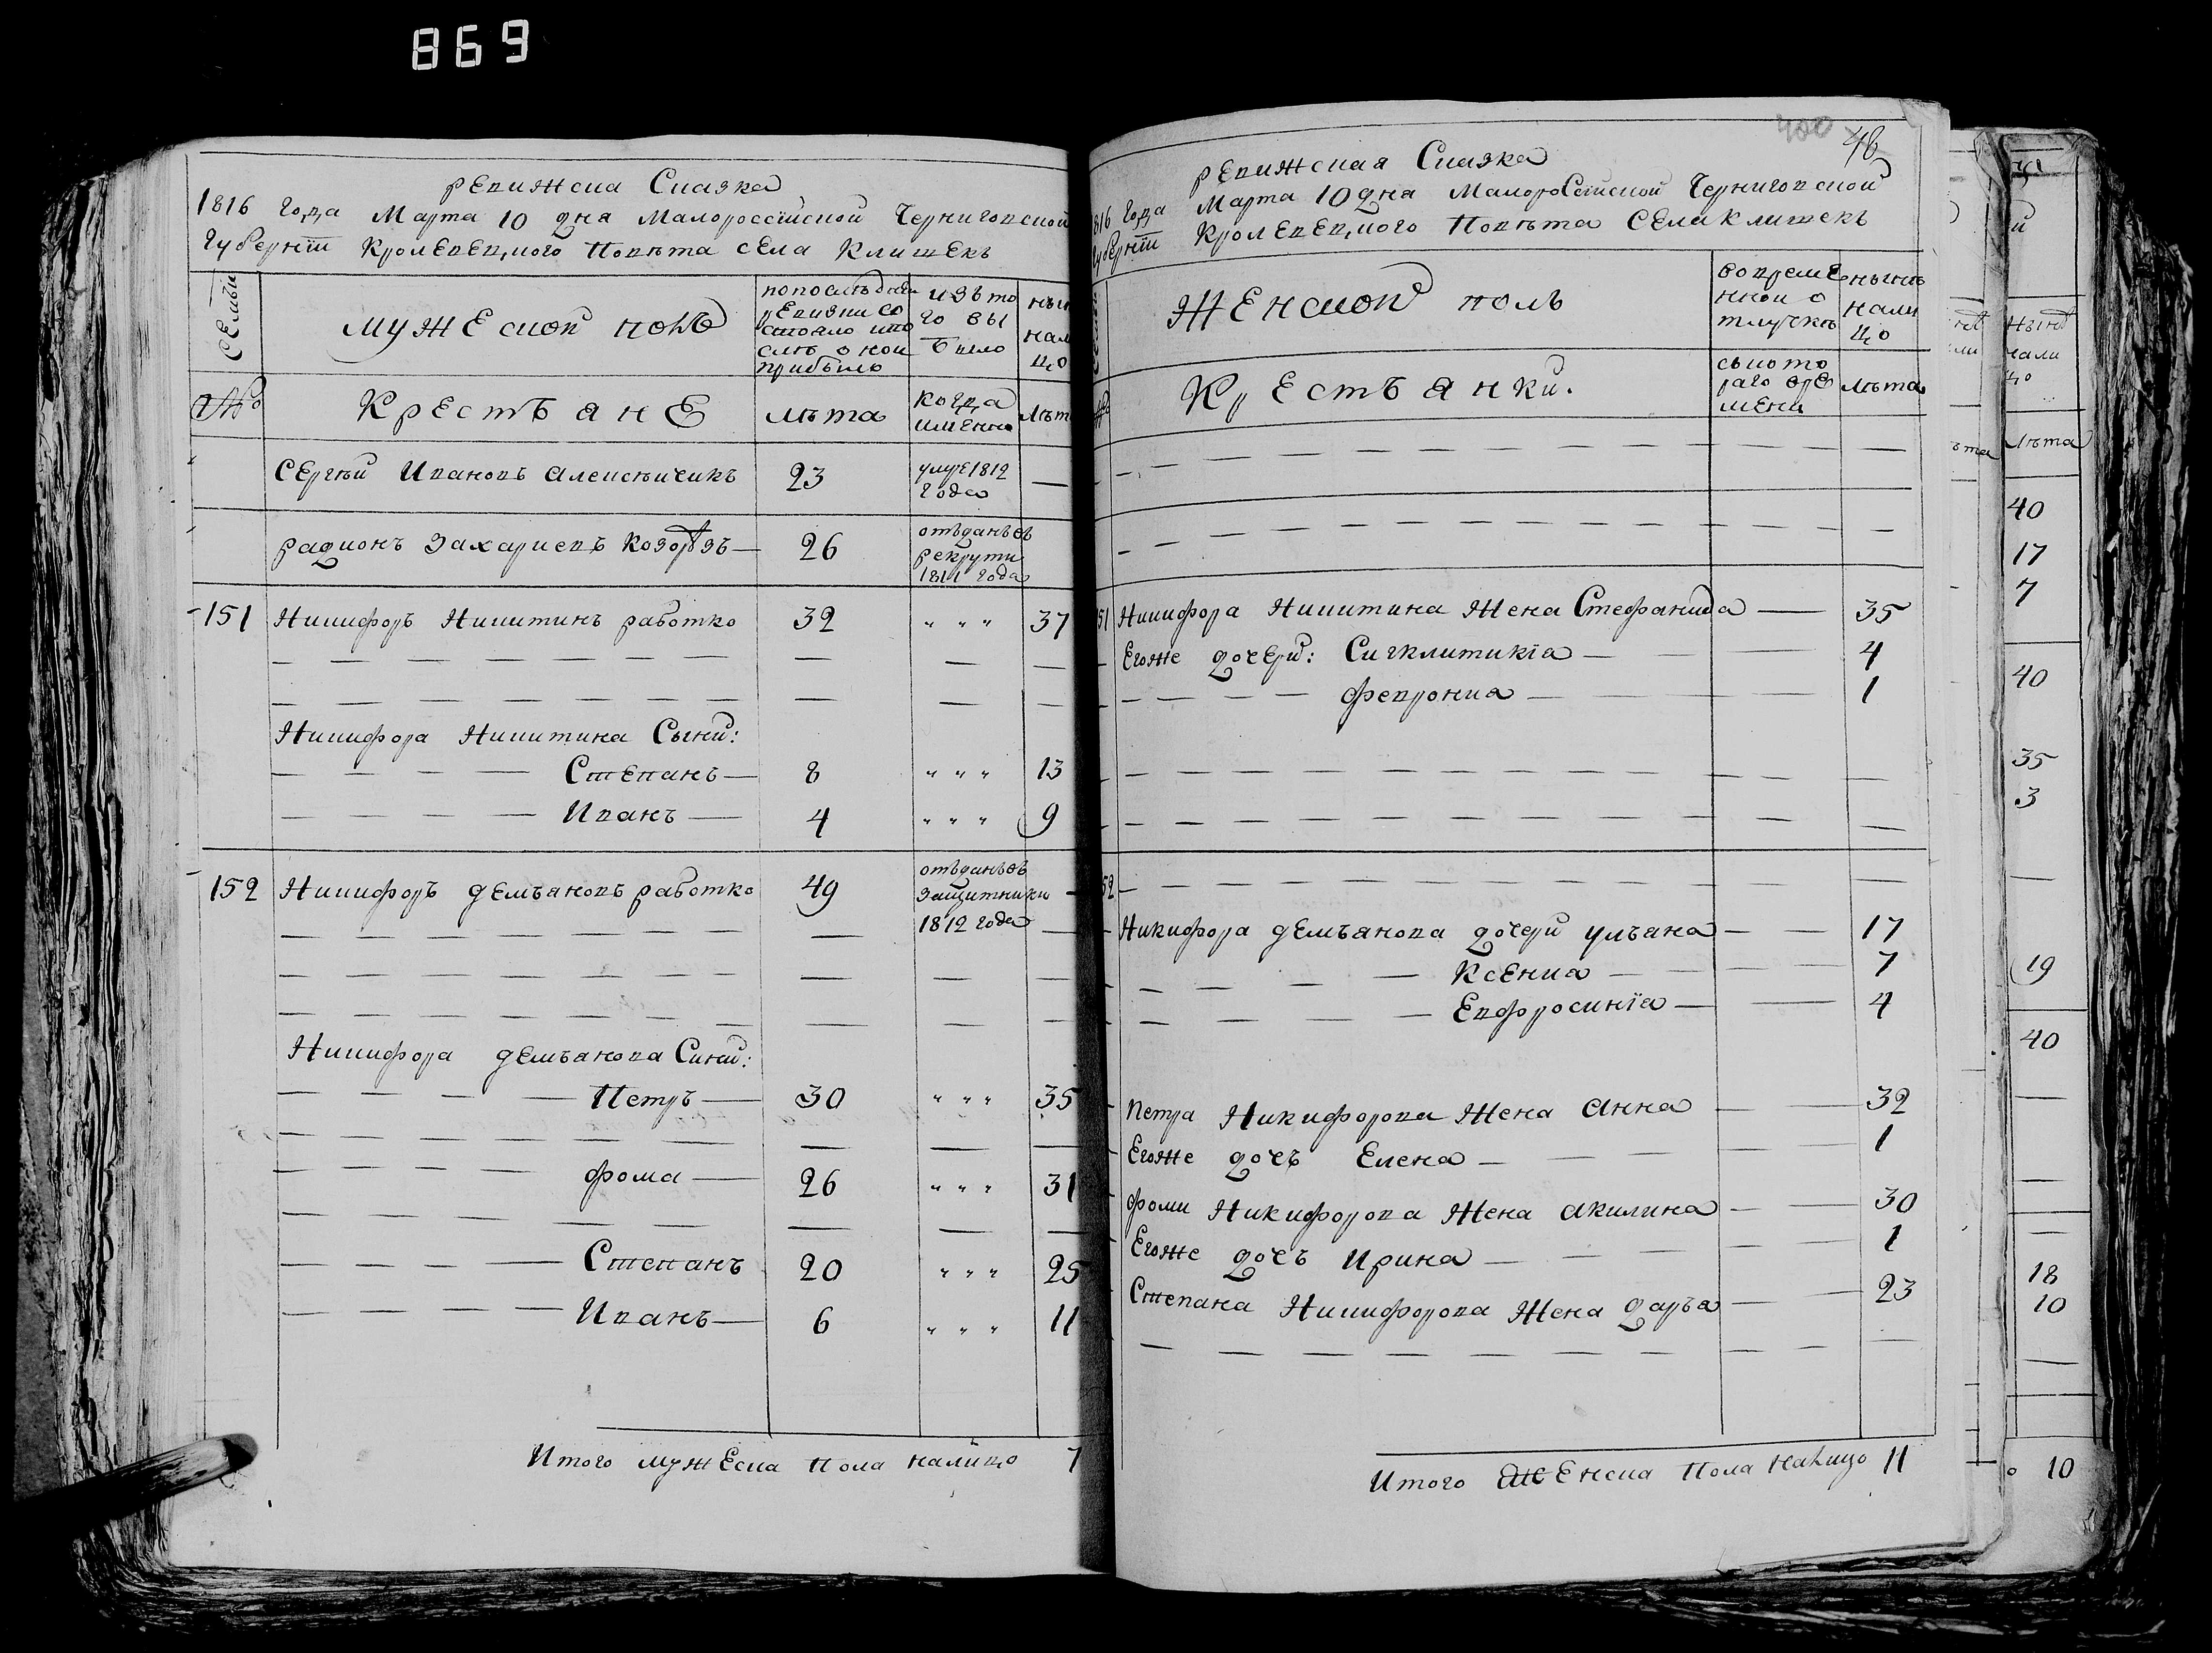 869
ревижска Сказка
1816 года Марта 10 дня Малороссійской Черниговской
Губерніи Кролевецкого Повѣта села Клишекъ
Семьи
мужеской полъ
попоследней
ревизіи со
стояло ипо
слѣ оной
прибыло
изъ то
го вы
было
нын
нали
цо
№
Крестъяне
лѣта
когда
именно
лѣт
Сергѣй Ивановъ Алексѣичикъ 23 умре 1812
года —
радионъ Захариевъ Козорѣзъ — 26 отъданъ въ
рекрути
1811 года
151 Никифоръ Никитинъ работко 32 " " " 37
Никифора Никитина Сыни:
Степанъ — 8 " " " 13
Иванъ — 4 " " " 9
152 Никифоръ демъяновъ работко 49 отъданъ въ
защитники
1812 года
Никифора демъянова Сини:
Петръ — 30 " " " 35
фома — 26 " " " 31
Степанъ 20 " " " 25
Иванъ — 6 " " " 11
Итого мужеска пола налицо 7
400 46
ревижская Сказка
1816 года Марта 10 дня Малороссійской Черниговской
Губерніи Кролевецкого Повѣта села клишекъ
Женской полъ
вовреме
нной о
тлучкѣ
нынѣ
нали
цо
Крестъянки.
съкото
раго вре
мени
лѣта
151 Никифора Никитина Жена Стефанида — 35
Егоже дочери: Сигклитикіа — 4
феврониа — 1
152
Никифора демъянова дочери улъана — 17
Ксениа — 7
Евфросиніа — 4
Петра Никифорова Жена анна — 32
Егоже дочъ Елена — 1
фоми Никифорова Жена акилина — 30
Егоже дочъ Ирина — 1
Степана Никифорова Жена даръа — 23
Итого Женска Пола налицо 11
й
нынѣ
нали
цо
лѣта
40
17
7
40
35
3
19
40
18
10
о 10